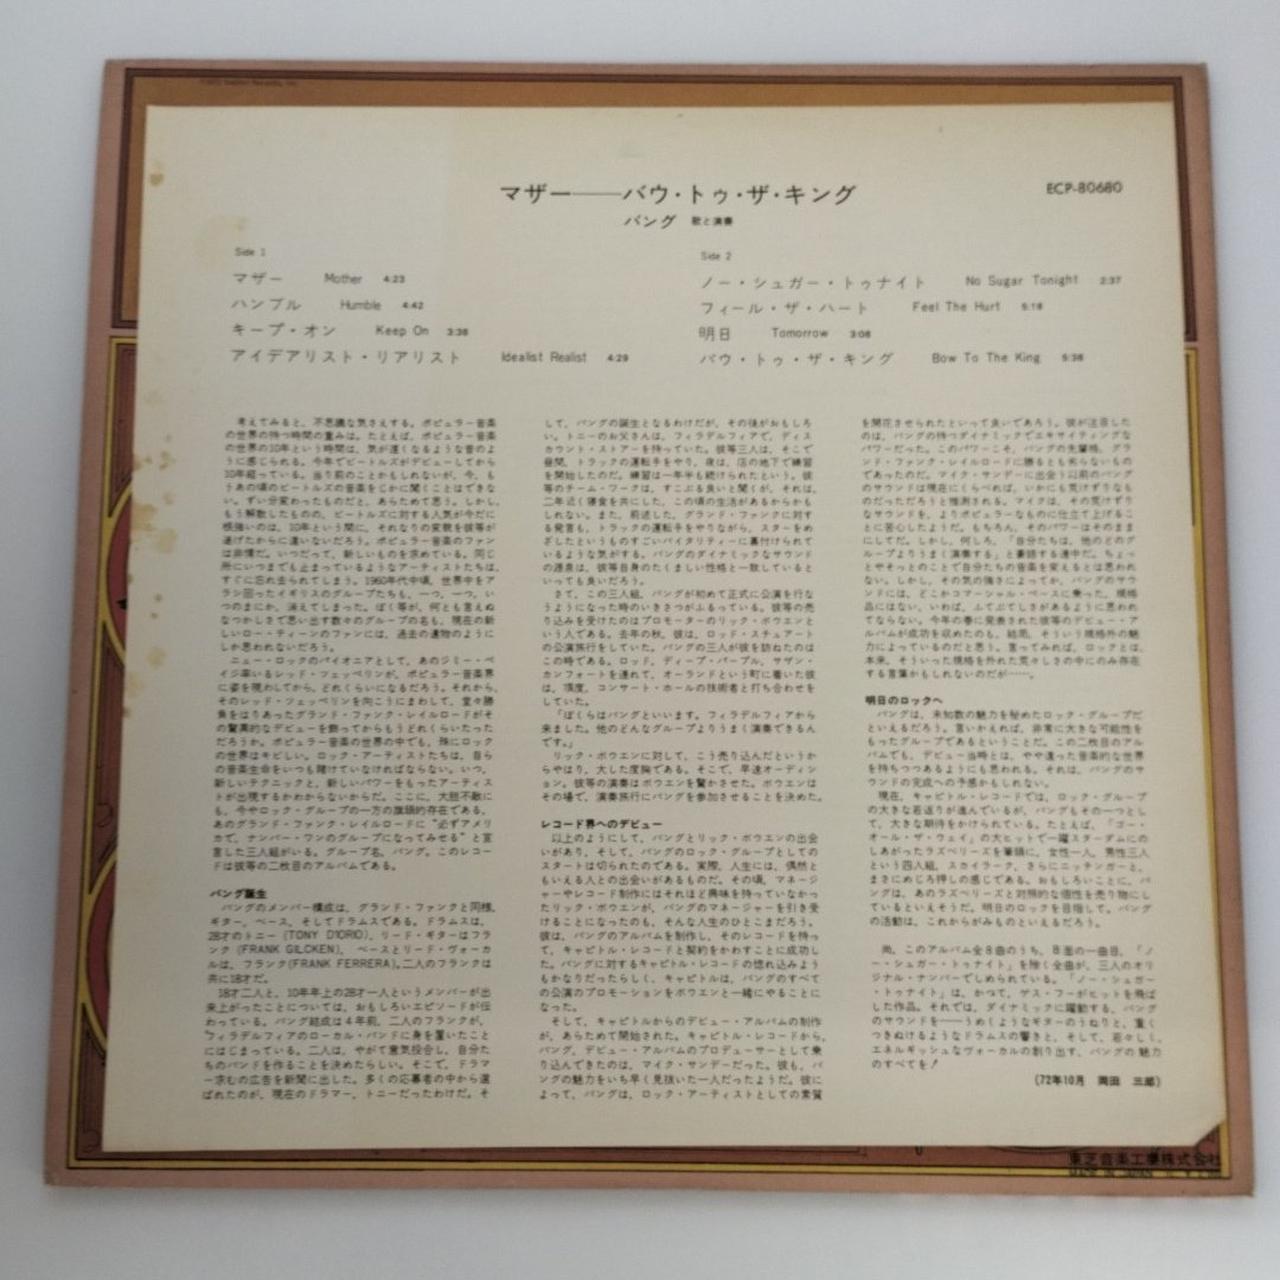 マザー――バウ・トゥ・ザ・キング
ECP-80680
バング 歌と演奏
Side 1
マザー Mother 4:23
ハンブル Humble 4:42
キープ・オン Keep On 3:38
アイデアリスト・リアリスト Idealist Realist 4:29
Side 2
ノー・シュガー・トゥナイト No Sugar Tonight 2:37
フィール・ザ・ハート Feel The Hurt 5:18
明日 Tomorrow 3:08
バウ・トゥ・ザ・キング Bow To The King 5:38
考えてみると、不思議な気さえする。ポピュラー音楽
の世界の持つ時間の重みは。たとえば、ポピュラー音楽
の世界の10年という時間は、気が遠くなるような昔のよ
うに感じられる。今年でビートルズがデビューしてから
10年経っている。当り前のことかもしれないが、今、も
うあの頃のビートルズの音楽をじかに聞くことはできな
い。ずい分変わったものだと、あらためて思う。しかし、
もう解散したものの、ビートルズに対する人気が今だに
根強いのは、10年という間に、それなりの変貌を彼等が
遂げたからに違いないだろう。ポピュラー音楽のファン
は非情だ。いつだって、新しいものを求めている。同じ
所にいつまでも止まっているようなアーティストたちは、
すぐに忘れ去られてしまう。1960年代中頃、世界中をア
ラシ回ったイギリスのグループたちも、一つ、一つ、い
つのまにか、消えてしまった。ぼく等が、何とも言えぬ
なつかしさで思い出す数々のグループの名も、現在の新
しいロー・ティーンのファンには、過去の遺物のように
しか思われないだろう。
ニュー・ロックのパイオニアとして、あのジミー・ペ
イジ率いるレッド・ツェッペリンが、ポピュラー音楽界
に姿を現わしてから、どれくらいになるだろう。それから、
そのレッド・ツェッペリンを向こうにまわして、堂々勝
負をはりあったグランド・ファンク・レイルロードがそ
の驚異的なデビューを飾ってからもうどれくらいたった
だろうか。ポピュラー音楽の世界の中でも、殊にロック
の世界はキビしい。ロック・アーティストたちは、自ら
の音楽生命をいつも賭けていなければならない。いつ、
新しいテクニックと、新しいパワーをもったアーティス
トが出現するかわからないからだ。ここに、大胆不敵に
も、今やロック・グループの一方の旗頭的存在である、
あのグランド・ファンク・レイルロードに“必ずアメリ
カで、ナンバー・ワンのグループになってみせる”と宣
言した三人組がいる。グループ名、バング。このレコー
ドは彼等の二枚目のアルバムである。
バング誕生
バングのメンバー構成は、グランド・ファンクと同様、
ギター、ベース、そしてドラムスである。ドラムスは、
28才のトニー(TONY D'IORIO)、リード・ギターはフラ
ンク (FRANK GILCKEN)、ベースとリード・ヴォーカ
ルは、フランク(FRANK FERRERA)。二人のフランクは
共に18才だ。
18才二人と、10年年上の28才一人というメンバーが出
来上がったことについては、おもしろいエピソードが伝
わっている。バング結成は4年前。二人のフランクが、
フィラデルフィアのローカル・バンドに身を置いたこと
にはじまっている。二人は、やがて意気投合し、自分た
ちのバンドを作ることを決めたらしい。そこで、ドラマ
ー求むの広告を新聞に出した。多くの応募者の中から選
ばれたのが、現在のドラマー、トニーだったわけだ。そ
して、バングの誕生となるわけだが、その後がおもしろ
い。トニーのお父さんは、フィラデルフィアで、ディス
カウント・ストアーを持っていた。彼等三人は、そこで
昼間、トラックの運転手をやり、夜は、店の地下で練習
を開始したのだ。練習は一年半も続けられたという。彼
等のチーム・ワークは、すこぶる良いと聞くが、それは、
二年近く寝食を共にした、この頃の生活があるからかも
しれない。また、前述した、グランド・ファンクに対す
る発言も、トラックの運転手をやりながら、スターをめ
ざしたというものすごいバイタリティーに裏付けられて
いるような気がする。バングのダイナミックなサウンド
の源泉は、彼等自身のたくましい性格と一致していると
いっても良いだろう。
さて、この三人組、バングが初めて正式に公演を行な
うようになった時のいきさつがふるっている。彼等の売
り込みを受けたのはプロモーターのリック・ボウエンと
いう人である。去年の秋、彼は、ロッド・スチュアート
の公演旅行をしていた。バングの三人が彼を訪ねたのは
この時である。ロッド、ディープ・パープル、サザン・
カンフォートを連れて、オーランドという町に着いた彼
は、項度、コンサート・ホールの技術者と打ち合わせを
していた。
「ぼくらはバングといいます。フィラデルフィアから
来ました。他のどんなグループよりうまく演奏できるん
です。」
リック・ボウエンに対して、こう売り込んだというか
らやはり、大した度胸である。そこで、早速オーディシ
ョン。彼等の演奏はボウエンを驚かさせた。ボウエンは
その場で、演奏旅行にバングを参加させることを決めた。
レコード界へのデビュー
以上のようにして、バングとリック・ボウエンの出会
いがあり、そして、バングのロック・グループとしての
スタートは切られたのである。実際、人生には、偶然と
もいえる人との出会いがあるものだ。その頃、マネージ
ャーやレコード制作にはそれほど興味を持っていなかっ
たリック・ボウエンが、バングのマネージャーを引き受
けることになったのも、そんな人生のひとこまだろう。
彼は、バングのアルバムを制作し、そのレコードを持っ
て、キャピトル・レコードと契約をかわすことに成功し
た。バングに対するキャピトル・レコードの惚れ込みよう
もかなりだったらしく、キャピトルは、バングのすべて
の公演のプロモーションをボウエンと一緒にやることに
なった。
そして、キャピトルからのデビュー・アルバムの制作
が、あらためて開始された。キャピトル・レコードから、
バング、デビュー・アルバムのプロデューサーとして乗
り込んできたのは、マイク・サンダーだった。彼も、バ
ングの魅力をいち早く見抜いた一人だったようだ。彼に
よって、バングは、ロック・アーティストとしての素質
を開花させられたといって良いであろう。彼が注目した
のは、バングの持つダイナミックでエキサイティングな
パワーだった。このパワーこそ、バングの先輩格、グラ
ンド・ファンク・レイルロードに勝るとも劣らないもの
であったのだ。マイク・サンダーに出会う以前のバング
のサウンドは現在にくらべれば、いかにも荒けずりなも
のだっただろうと推測される。マイクは、その荒けずり
なサウンドを、よりポピュラーなものに仕立て上げるこ
とに苦心したようだ。もちろん、そのパワーはそのまま
にしてだ。しかし、何しろ、「自分たちは、他のどのグ
ループよりうまく演奏する」と豪語する連中だ。ちょっ
とやそっとのことで自分たちの音楽を変えるとは思われ
ない。しかし、その気の強さによってか、バングのサウ
ンドには、どこかコマーシャル・ベースに乗った、規格
品にはない、いわば、ふてぶてしさがあるように思われ
てならない。今年の春に発表された彼等のデビュー・ア
ルバムが成功を収めたのも、結局、そういう規格外の魅
力によっているのだと思う。言ってみれば、ロックとは、
本来、そういった規格を外れた荒々しさの中にのみ存在
する言葉かもしれないのだが……。
明日のロックへ
バングは、未知数の魅力を秘めたロック・グループだ
といえるだろう。言いかえれば、非常に大きな可能性を
もったグループであるということだ。この二枚目のアル
バムでも、デビュー当時とは、やや違った音楽的な世界
を持ちつつあるようにも思われる。それは、バングのサ
ウンドの完成への予感かもしれない。
現在、キャピトル・レコードでは、ロック・グループ
の大きな若返りが進んでいるが、バングもその一つとし
て、大きな期待をかけられている。たとえば、「ゴー・
オール・ザ・ウェイ」の大ヒットで一躍スターダムにの
しあがったラズベリーズを筆頭に、女性一人、男性三人
という四人組、スカイラーク、さらにニッチンガーと、
まさにめじろ押しの感じである。おもしろいことに、バ
ングは、あのラズベリーズと対照的な個性を売り物にし
ているといえそうだ。明日のロックを目指して、バング
の活動は、これからがみものといえるだろう。
尚、このアルバム全8曲のうち、B面の一曲目、「ノ
ー・シュガー・トゥナイト」を除く全曲が、三人のオリ
ジナル・ナンバーでしめられている。「ノー・シュガー
・トゥナイト」は、かつて、ゲス・フーがヒットを飛ば
した作品。それでは、ダイナミックに躍動する、バング
のサウンドを――うめくようなギターのうねりと、重く
つきぬけるようなドラムスの響きと、そして、若々しく、
エネルギッシュなヴォーカルの創り出す、バングの魅力
のすべてを!
(72年10月 岡田 三郎)
東芝音楽工業株式会社
MADE IN JAPAN